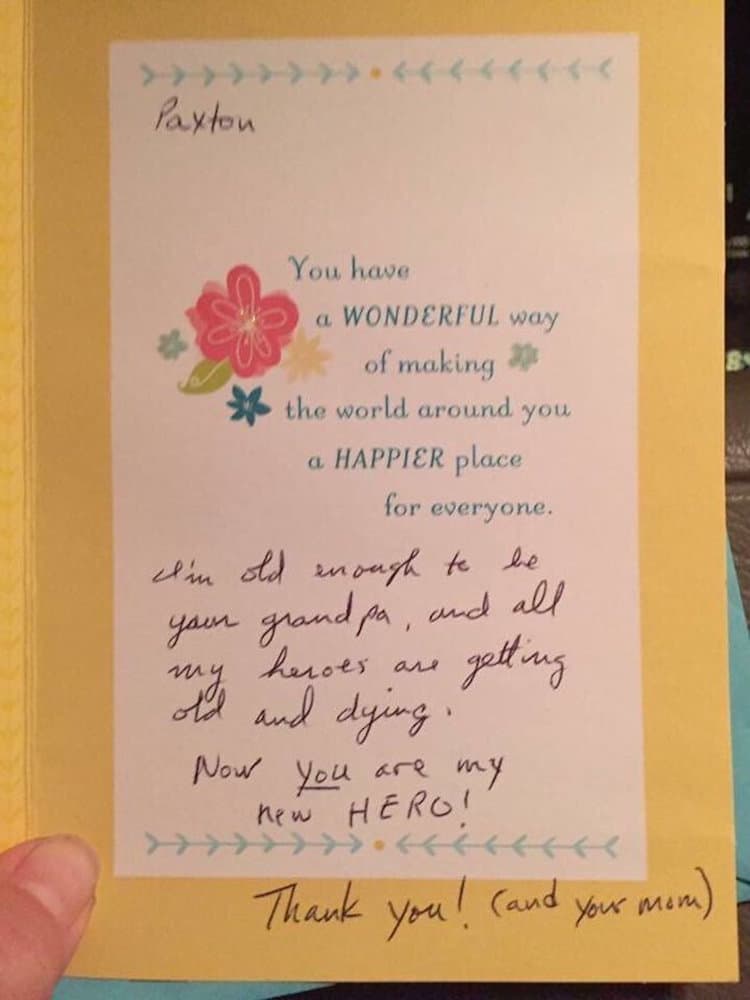 Paxton
You have
a WONDERFUL way
of making
the world around you
a HAPPIER place
for everyone.
I'm old enough to be
your grandpa, and all
my heroes are getting
old and dying.
Now you are my
new HERO!
Thank you! (and your mom)